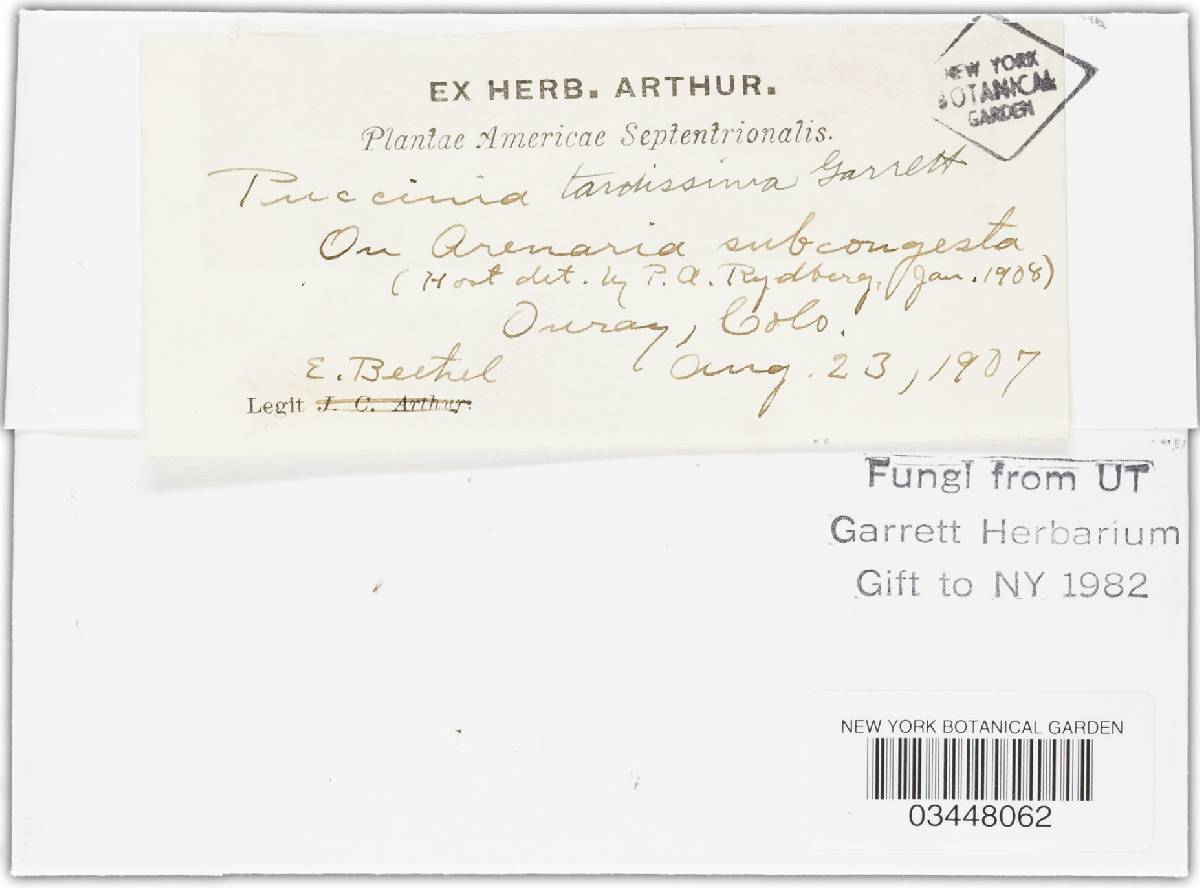 EX HERB. ARTHUR.
NEW YORK
BOTANICAL
GARDEN
Plantae Americae Septentrionalis.
Puccinia tardissima Garrett
On Arenaria subcongesta
(Host det. by P. A. Rydberg, Jan. 1908)
Ouray, Colo.
E. Bethel Aug. 23, 1907
Legit J. C. Arthur.
Fungi from UT
Garrett Herbarium
Gift to NY 1982
NEW YORK BOTANICAL GARDEN
03448062